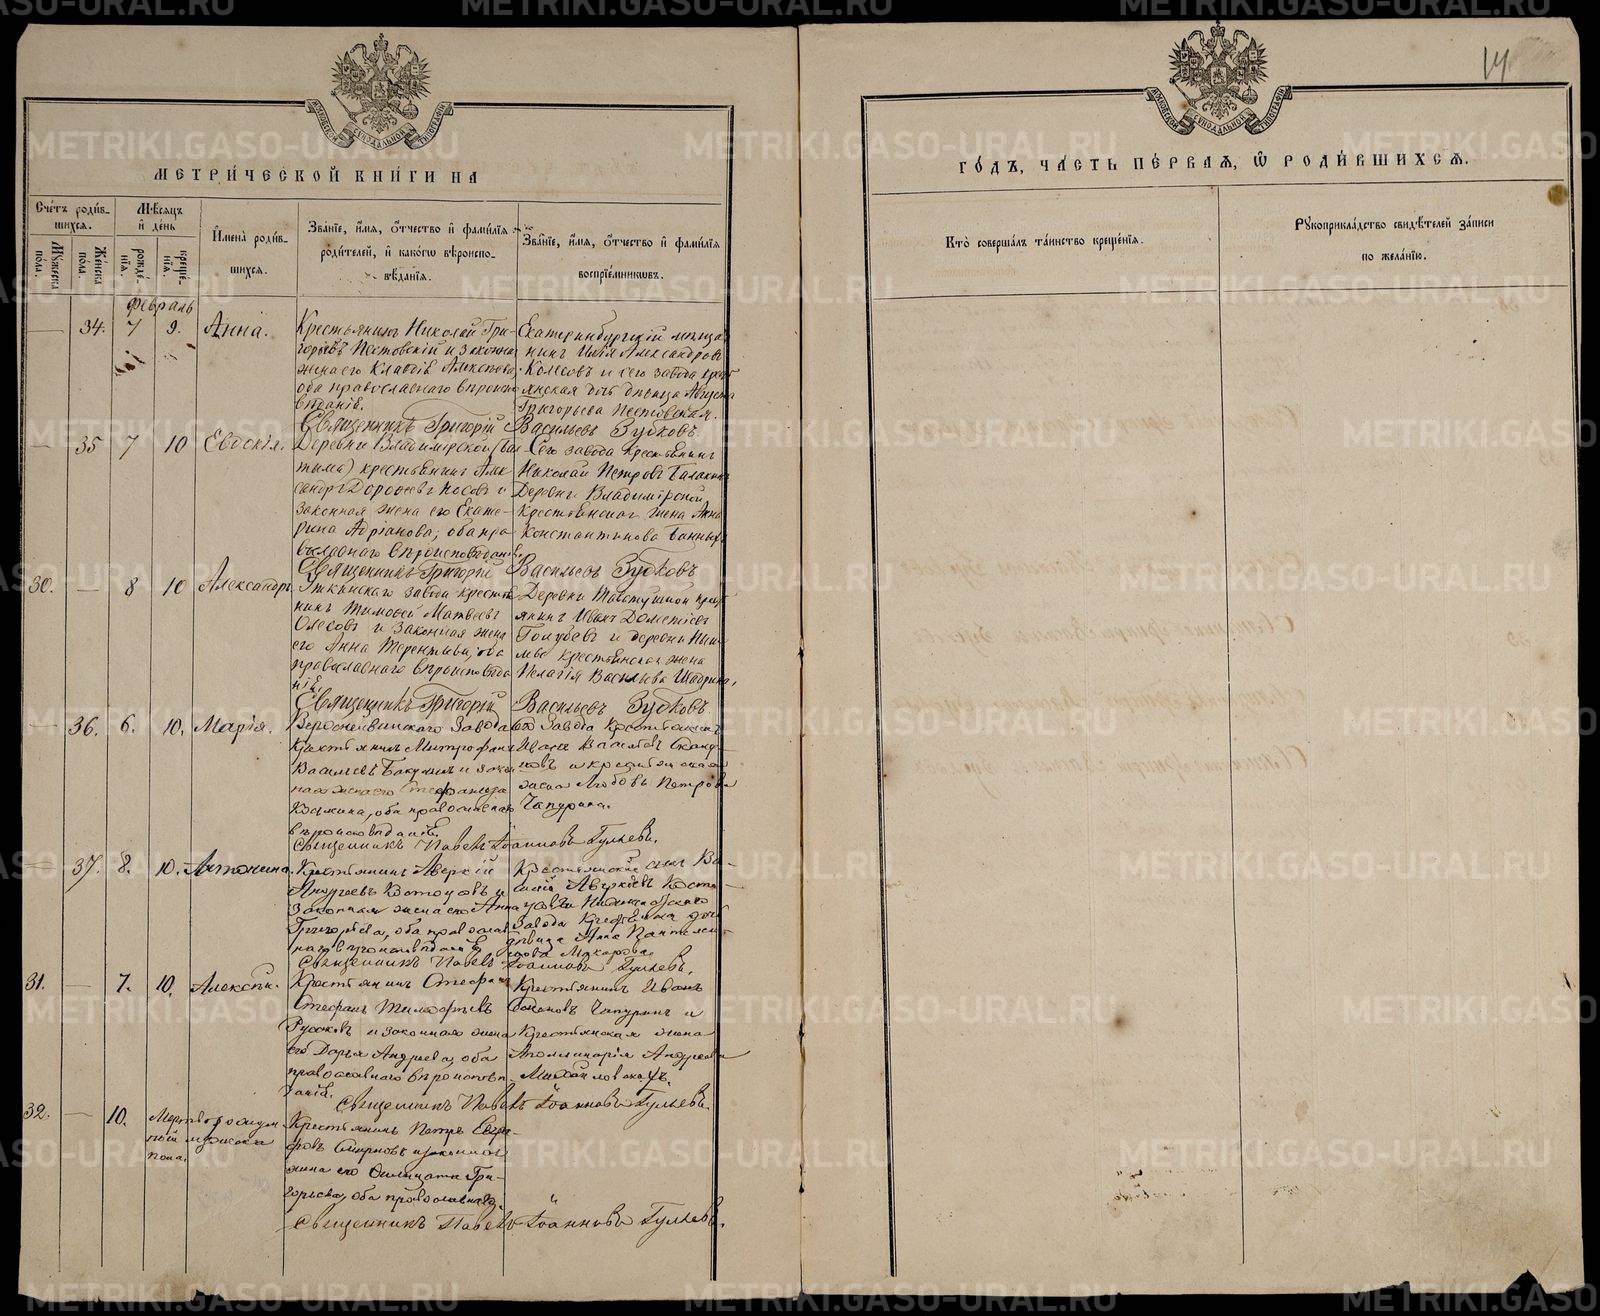 14
МЕТРИ́ЧЕСКОЙ КНИ́ГИ НА
ГО́ДЪ, ЧА́СТЬ ПЕ́РВАѦ, Ѿ РОДИ́ВШИХСѦ.
Сче́тъ роди́в-
шихсѧ.
Мꙋ́жеска по́ла.
Же́нска по́ла.
Мѣ́сѧцъ
и де́нь
рожде́-
нїѧ.
креще́-
нїѧ.
И҆мена̀ роди́в-
шихсѧ.
Зва́нїе, и҆́мѧ, ѻ҆́тчество и҆ фами́лїѧ
роди́телей, и҆ како́гѡ вѣроиспо-
вѣ́данїѧ.
Зва́нїе, и҆́мѧ, ѻ҆́тчество и҆ фами́лїѧ
воспрїе́мникѡвъ.
Кто̀ соверша́лъ та́инство креще́нїѧ.
Рꙋкоприкла́дство свидѣ́телей за́писи
по жела́нїю.
Февраль
34. 7 9. Анна.
Крестьянинъ Николай Гри-
горьевъ Пестовскій и законна
жена его Клавдія Алексѣева,
оба православнаго вѣроиспо
вѣданія.
Екатеринбургскій мѣща
нинъ Илія Александровъ
Колесовъ и сего завода крест
янская дочь дѣвица Августа
Григорьева Пестовская.
Священникъ Григорій Васильевъ Зубковъ.
35 7 10 Евдокія.
Деревни Владимірской
крестьянинъ Алек
сандръ Дороѳеевъ Носовъ и
законная жена его Екате-
рина Адріанова, оба пра
вославнаго вѣроисповѣданія.
Сего завода крестьянинъ
Николай Петровъ Балакинъ
Деревни Владимірской
крестьянская жена Анна
Константинова Банныхъ
Священникъ Григорій Васильевъ Зубковъ
30. — 8 10 Александръ
Уткинскаго завода крестья
нинъ Тимоѳей Матвѣевъ
и законная жена
его Анна Терентьева, оба
православнаго вѣроисповѣда
нія.
Деревни крест
янинъ Иванъ Дометіевъ
Голубевъ и деревни
крестьянская жена
Пелагія Васильева
Священникъ Григорій Васильевъ Зубковъ.
— 36. 6. 10. Марія.
Верхнейвинскаго Завода
Крестьянинъ Митрофанъ
Васильевъ Бакулинъ и закон
ная жена его Стефанида
Козмина, оба православнаго
вѣроисповѣданія.
сего Завода Крестьянинъ
Иванъ Васильевъ
и крестьянская
жена Любовь Петрова
Чапурина.
Священникъ Павелъ Іоанновъ Гуляевъ.
— 37. 8. 10. Антонина.
Крестьянинъ Аверкій
Андреевъ Котоусовъ и
Законная жена его Анна
Григорьева, оба православ
наго вѣроисповѣданія
Крестьянскій сынъ Ва-
силій Аверкіевъ Кото-
усовъ и
Завода Крестьянская дочь
дѣвица Анна Пантелеи-
мова Макарова
Священникъ Павелъ Іоанновъ Гуляевъ.
31. — 7. 10. Алексѣй.
Крестьянинъ Стефанъ
Стефанъ Тимоѳеевъ
Русаковъ и законная жена
его Дарья Андреева, оба
православнаго вѣроисповѣ-
данія.
Крестьянинъ Иванъ
Чапуринъ и
Крестьянская жена
Аполлинарія Андреева
Священникъ Павелъ Іоанновъ Гуляевъ.
32. — 10. Мертворожден-
ный мужеска
пола.
Крестьянинъ Петръ Евгра-
фовъ Смирновъ и законная
жена его Фелицата Гри-
горьева, оба православнаго.
"
Священникъ Павелъ Іоанновъ Гуляевъ.
METRIKI.GASO-URAL.RU